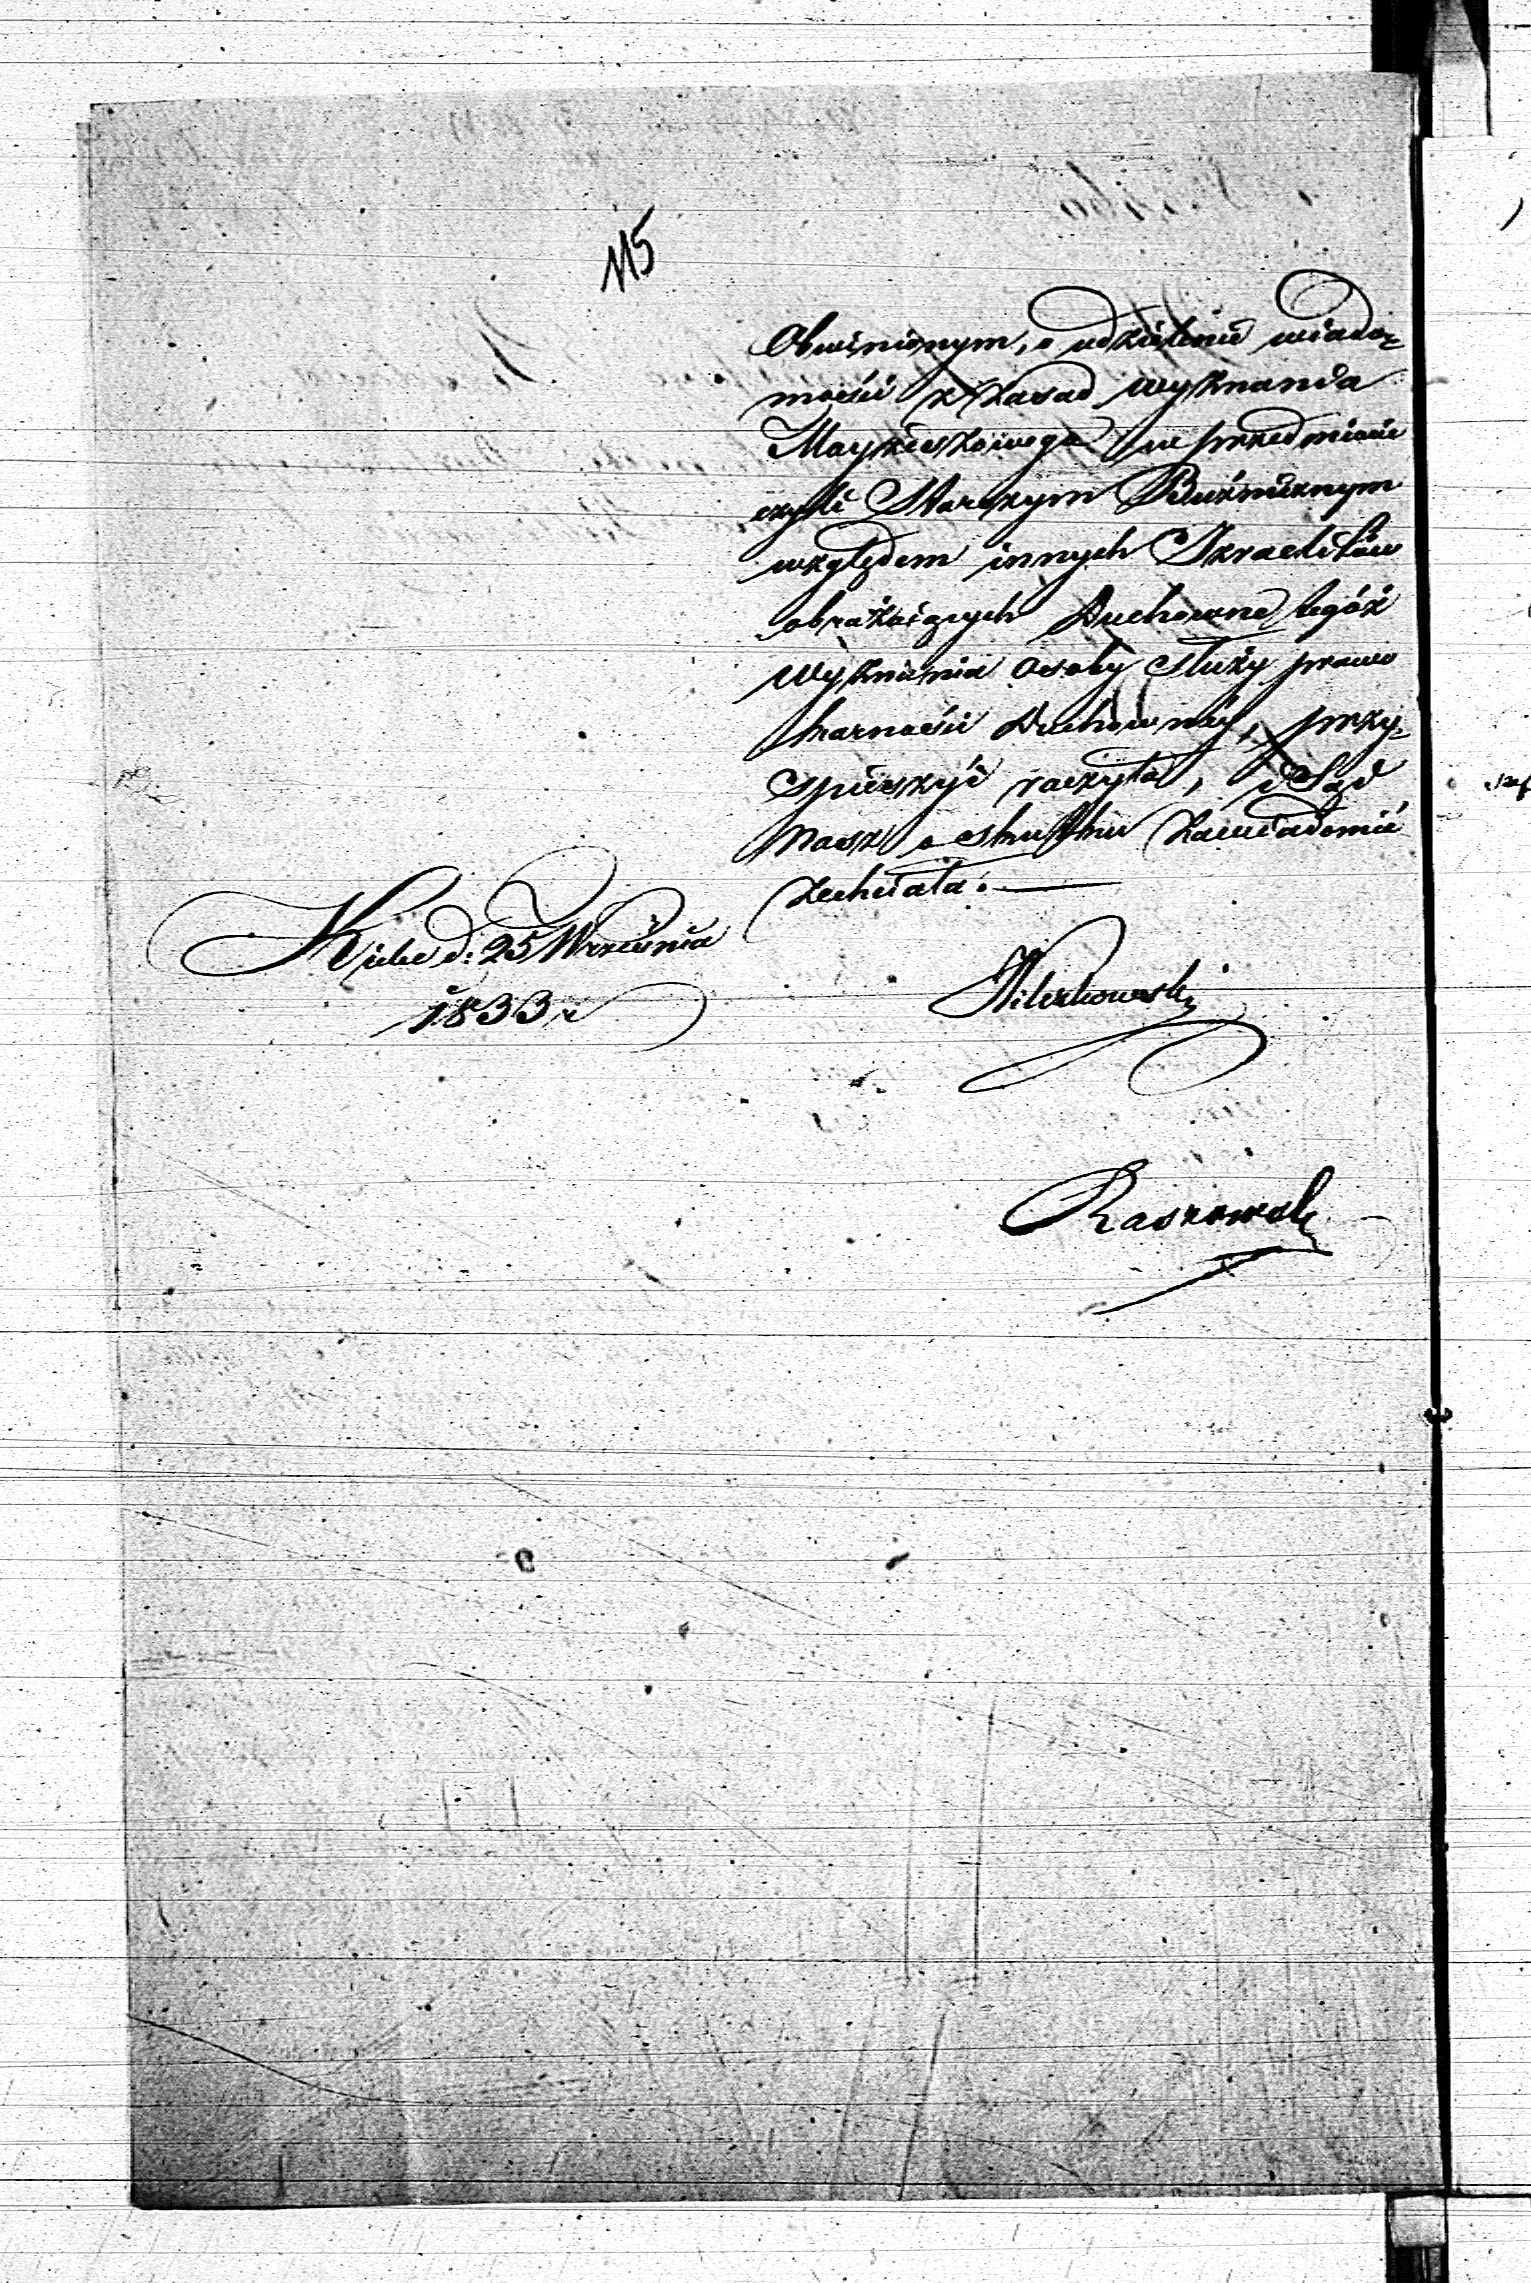 115
Obwinionym, o udzielenie wiado=
mości z zasad wyznania
Mayżeszowego w przedmiocie
czyli Starszym Bużniznym
względem innych Izraelitów
obrażaiących Duchowne tegóż
wyznania osoby służy prawo
karności Duchownéy, przy=
śpieszyć raczyła, i Sąd
Nasz o skutku zawiadomić
zechciała.
Kielce d: 25 Września
1833 r
Raszowski